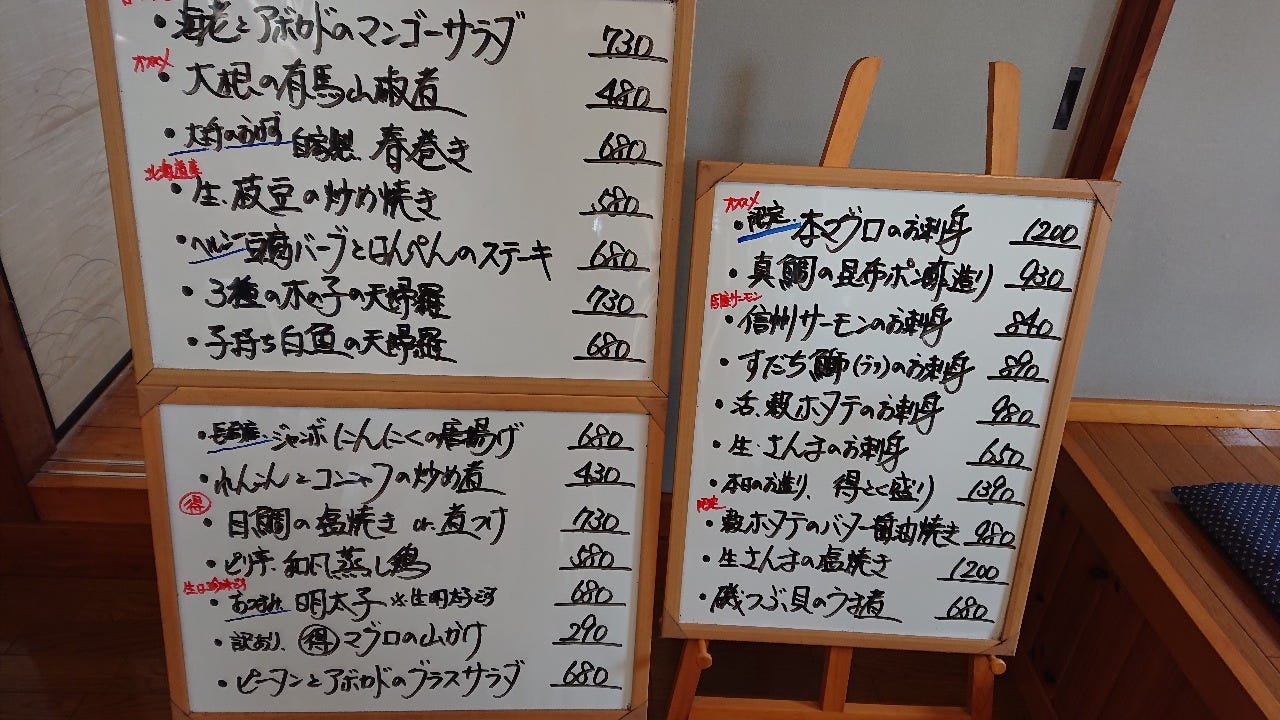 ・海老とアボカドのマンゴーサラダ 730
オススメ
・大根の有馬山椒煮 480
・大舟のお好 自家製 春巻き 680
北海道産
・生.枝豆の炒め焼き 580
・ヘルシー豆腐バーグとはんぺんのステーキ 680
・3種の木の子の天婦羅 730
・子持ち白魚の天婦羅 680
・ジャンボにんにくの唐揚げ 680
・れんこんとコンニャクの炒め煮 430
得
・目鯛の塩焼き or 煮つけ 730
・ピリ辛.和風蒸し鶏 580
・明太子 ※生明太子です 680
・訳あり、得マグロの山かけ 290
・ピータンとアボカドのグラスサラダ 680
オススメ
・限定.本マグロのお刺身 1200
・真鯛の昆布ポン酢造り 930
・信州サーモンのお刺身 840
・すだち鰤(ブリ)のお刺身 890
・活.殻ホタテのお刺身 980
・生.さんまのお刺身 650
・本日のお造り、得とく盛り 1390
限定
・殻ホタテのバター醤油焼き 980
・生さんまの塩焼き 1200
・磯つぶ貝のうま煮 680